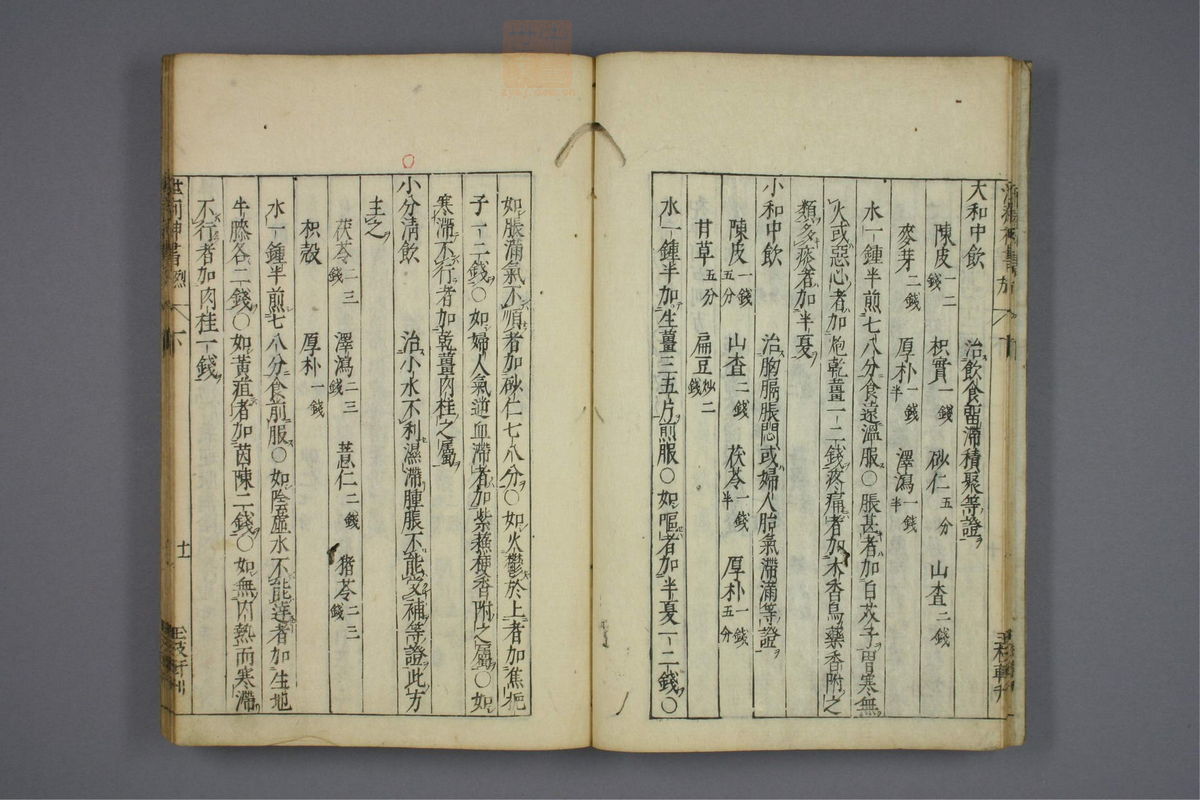 大和中飲　治飲食留滯積聚等證
陳皮一二錢　枳實一錢　砂仁五分　山査二錢
麥芽二錢　厚朴一錢半　澤瀉一錢半
水一鍾半煎七八分食遠溫服○脹甚者加白芥子胃寒無
火或惡心者加炮乾薑一二錢疼痛者加木香烏藥香附之
類多痰者加半夏
小和中飲　治胸膈脹悶或婦人胎氣滯滿等證
陳皮一錢五分　山査二錢　茯苓一錢半　厚朴一錢五分
甘草五分　扁豆炒二錢
水一鍾半加生薑三五片煎服○如嘔者加半夏一二錢○
如脹滿氣不順者加砂仁七八分○如火鬱於上者加焦梔
子一二錢○如婦人氣逆血滯者加紫蘇梗香附之屬○如
寒滯不行者加乾薑肉桂之屬
小分清飲　治小水不利濕滯腫脹不能受補等證此方
主之
茯苓二三錢　澤瀉二三錢　薏仁二錢　猪苓二三錢
枳殼　厚朴一錢
水一鍾半煎七八分食前服○如陰虛水不能達者加生地
牛膝各二錢○如黃疸者加茵陳二錢○如無內熱而寒滯
不行者加肉桂一錢
十一